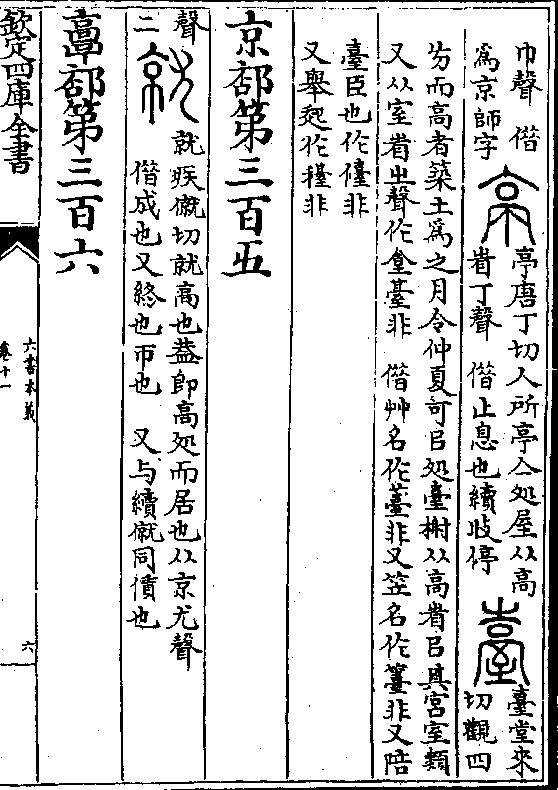 巾聲 借
為京師字
亭唐丁切人所亭亼処屋从高
省丁聲 借止息也續歧停
臺堂來
切觀四
方而高者築土為之月令仲夏可㠯処臺榭从高省㠯其宮室類
又从室省㞢聲作𡌶臺非 借艸名作薹非又笠名作籉非又陪
臺臣也作儓非
又舉
作
非
京部第三百五
聲
二
就疾僦切就高也葢即高処而居也从京尤聲
借成也又終也帀也 又与續僦同債也
𩫖部第三百六
欽定四庫全書
六書本義
卷十一
六